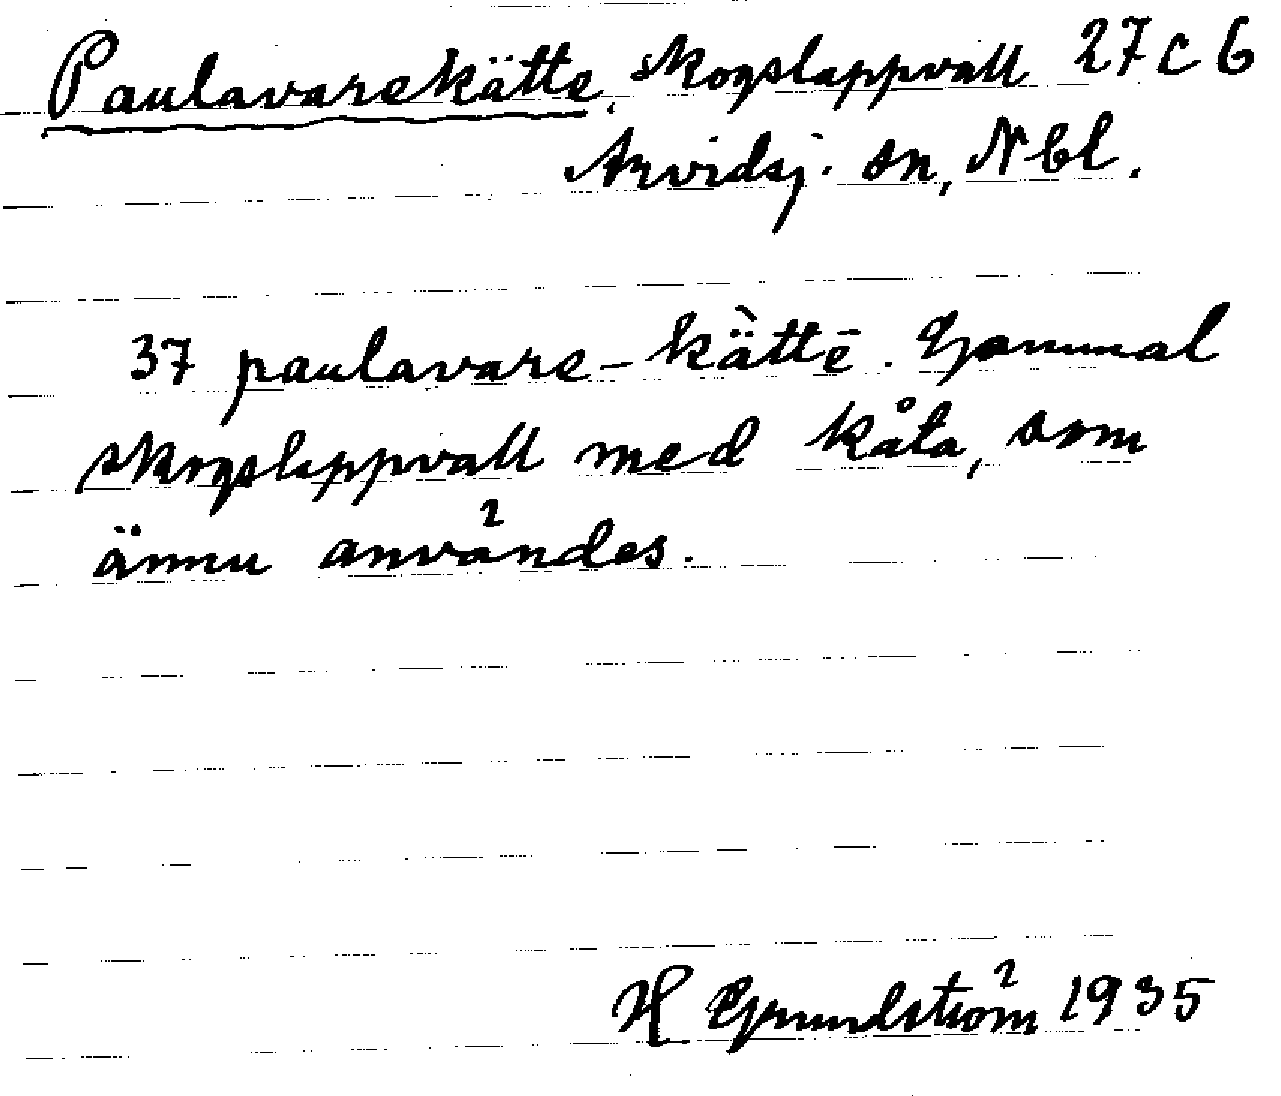 Paulavarekätte, skogslappvall 27 c 6
Arvidsj. sn, Nbl.
37 paulavare-kä̀ttē. Gammal
skogslappvall med kåta, som
ännu användes.
H Grundström 1935